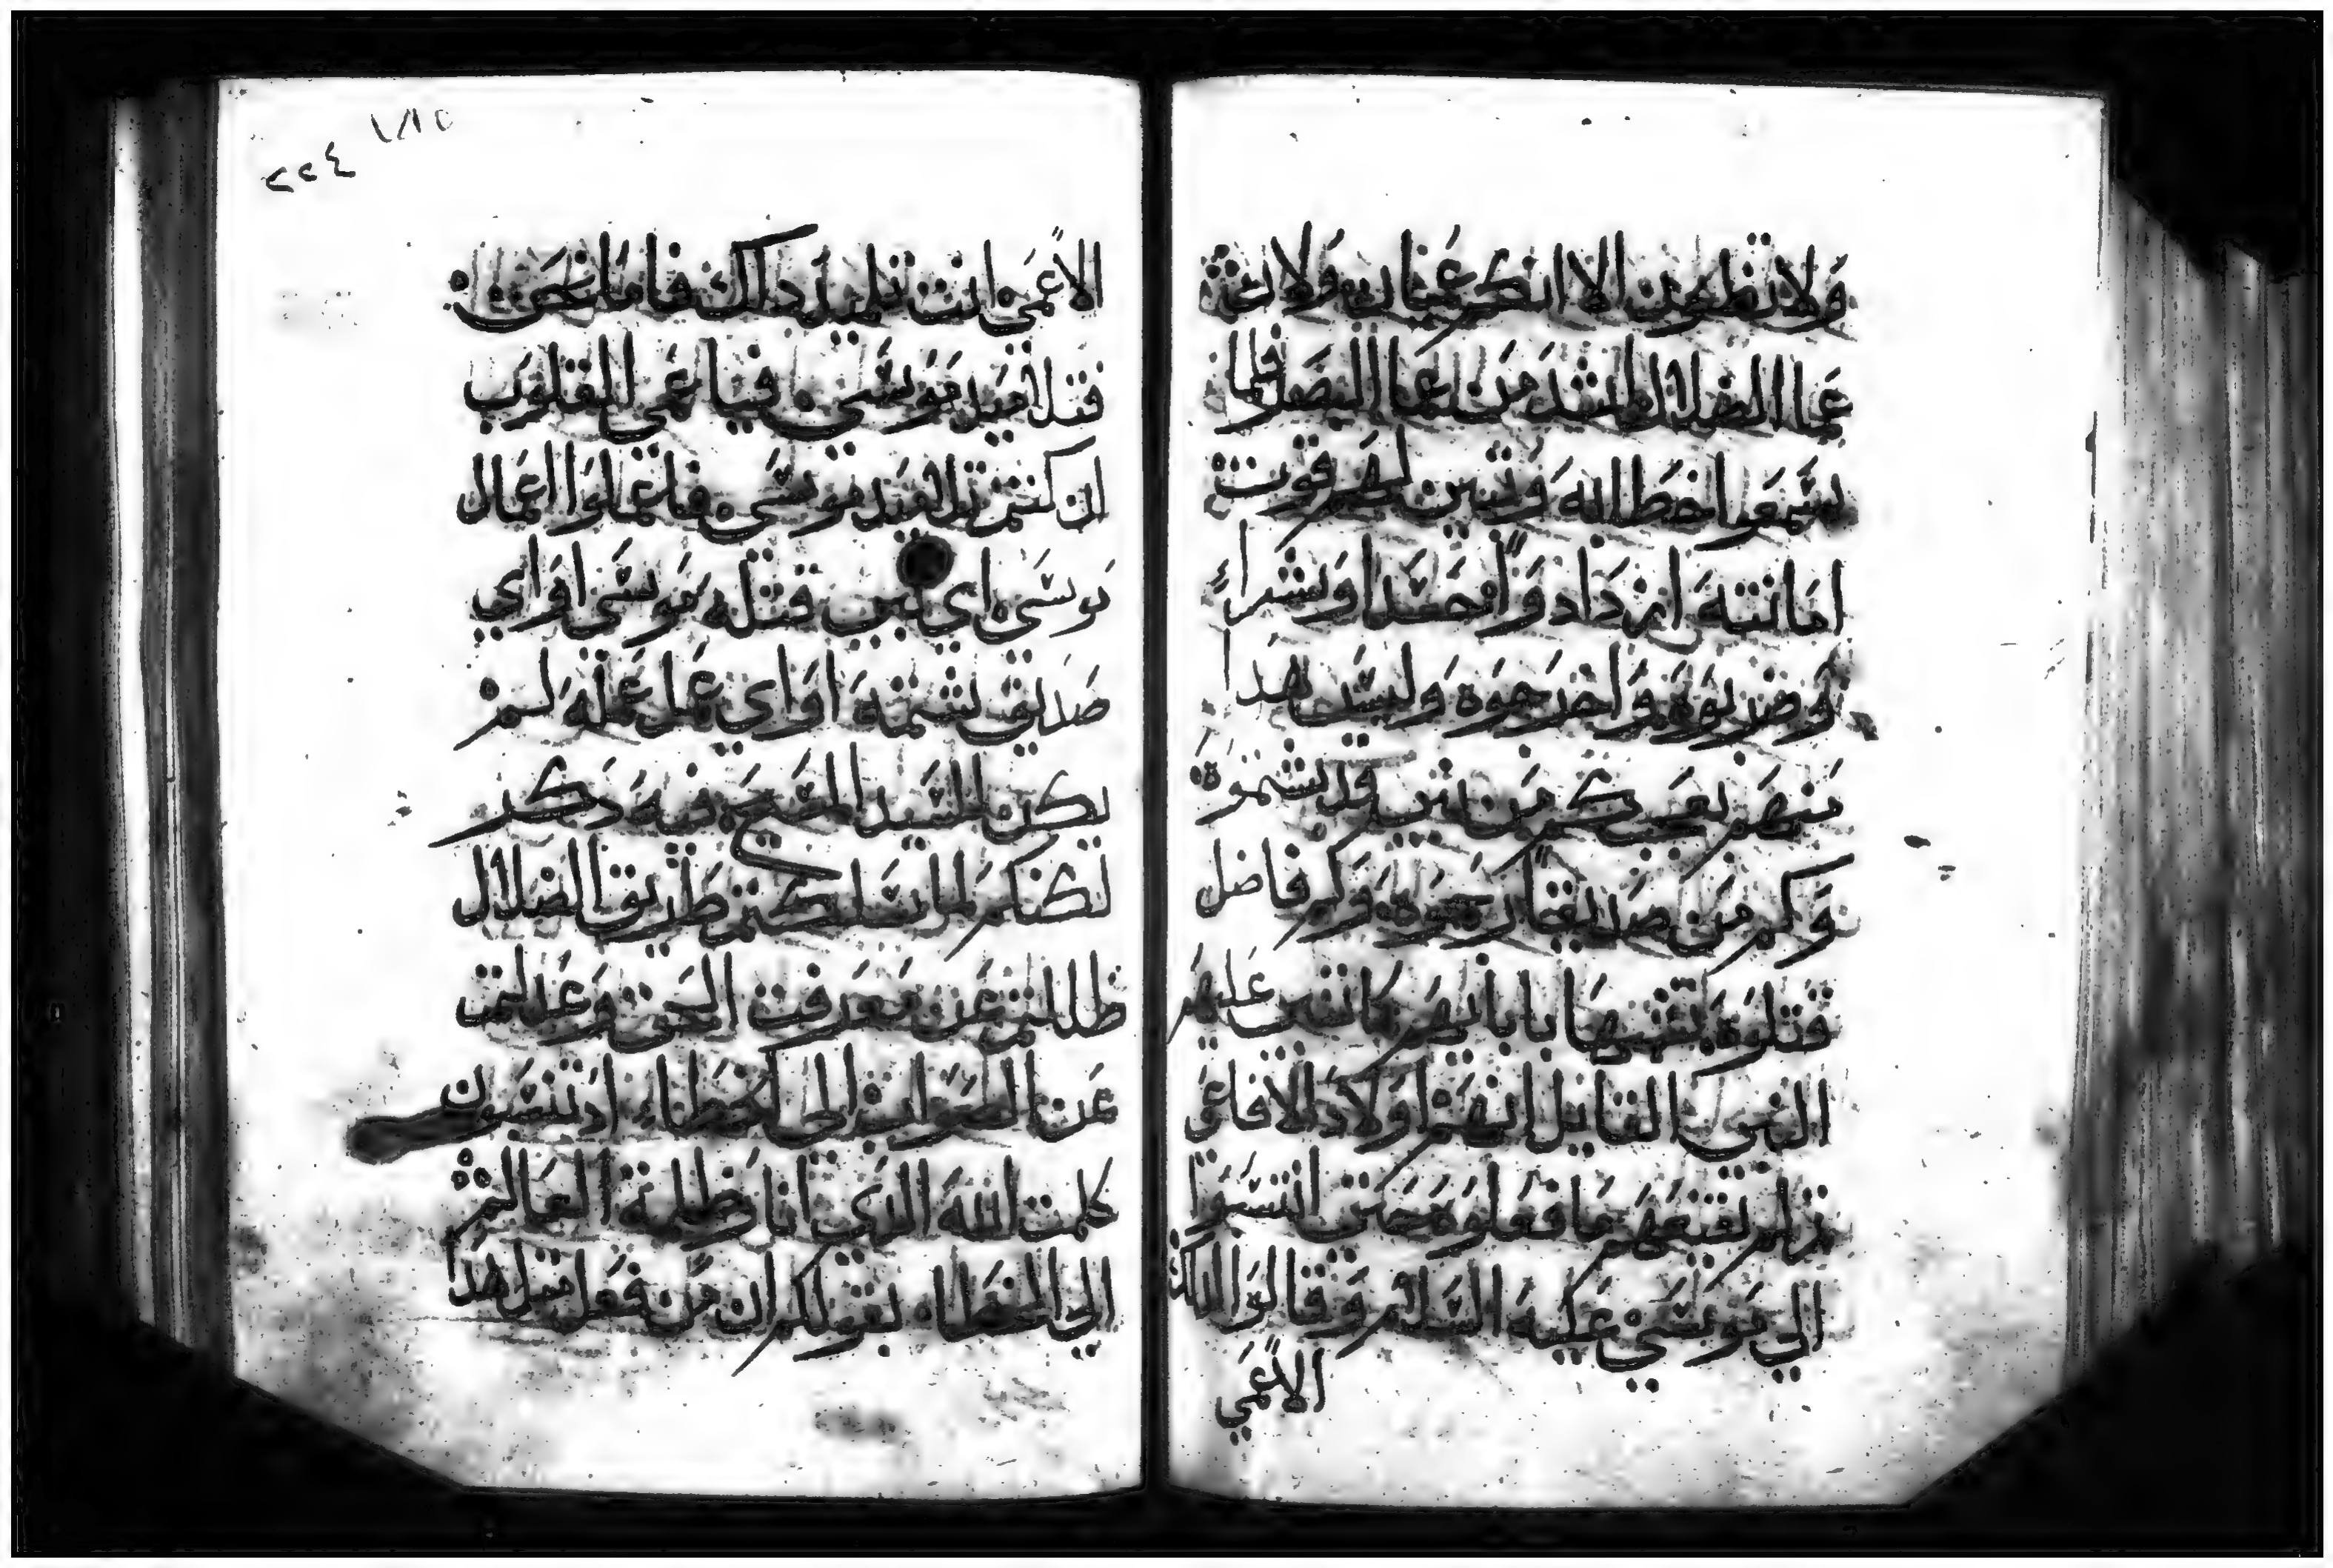 ولا تظهرين الا انكم عميان ولان
عما الضلال اشد من عما البصر فلما
سمعوا خطابه وتبين لهم قوت
امانته ازداد واحسدا وشرا
وضربوه واخرجوه وليس هدا
منهم بعجب كم من نبي قد شتموه
وكم من صديقا رجموه وكم فاضل
قتلوه تشبها بابايهم كما تنبي عليهم
النبي القايل انهم اولاد الافاعي
ثم لم يقنعهم ما فعلوه حتى انتسبوا
الي موسي عليه السلام وقالوا لداك
الاعمي
الاعمي انت تلميد داك فاما نحن
فتلاميد موسي فيا عمي القلوب
ان كنتم تلاميد موسي فاعملوا اعمال
موسي اي نبي قتله موسي او اي
صديق شتمه او اي عمل عمله لم
يكن للسيد المسيح فيه دكر
لكنكم لما سلكتم طريق الضلال
ظللتم عن معرفت الحق وعدلتم
عن الصواب الي الخطاء اد تنسبون
كلمت الله الدي انا خطية العالم
الي الخطا بقولكم ان من فعل مثل هدا
٢٢٤